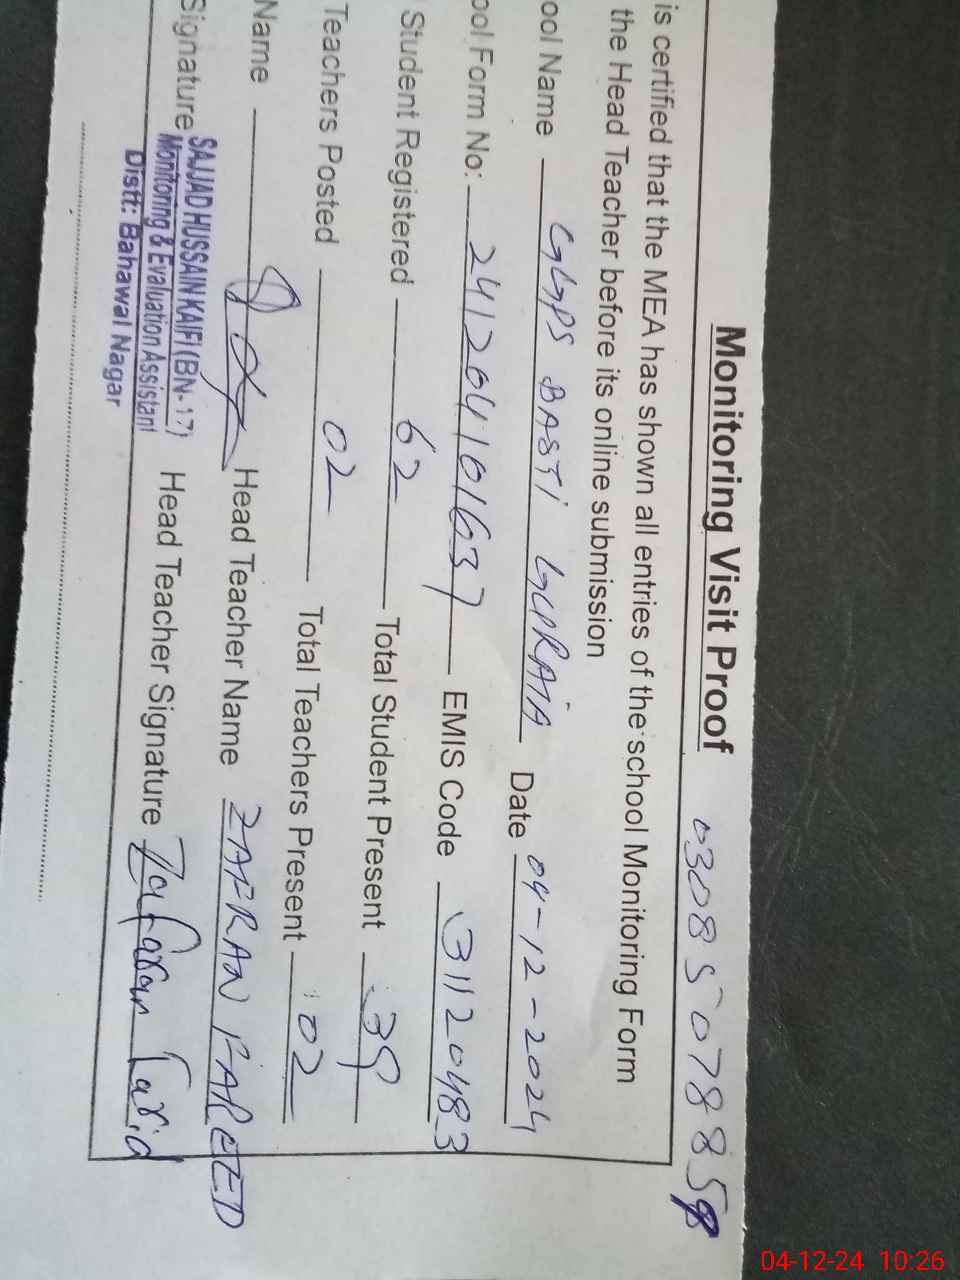 Monitoring Visit Proof 0308 5078858
is certified that the MEA has shown all entries of the school Monitoring Form
the Head Teacher before its online submission
ool Name GGPS BASTI GUJRAIA Date 04-12-2024
ool Form No: 241204101637 EMIS Code 31120483
Student Registered 62 Total Student Present 39
Teachers Posted 02 Total Teachers Present 02
Name Head Teacher Name ZAFRAN FAREED
Signature Head Teacher Signature Zafaran Farid
SAJJAD HUSSAIN KAIFI (BN-17)
Monitoring & Evaluation Assistant
Distt: Bahawal Nagar
04-12-24 10:26